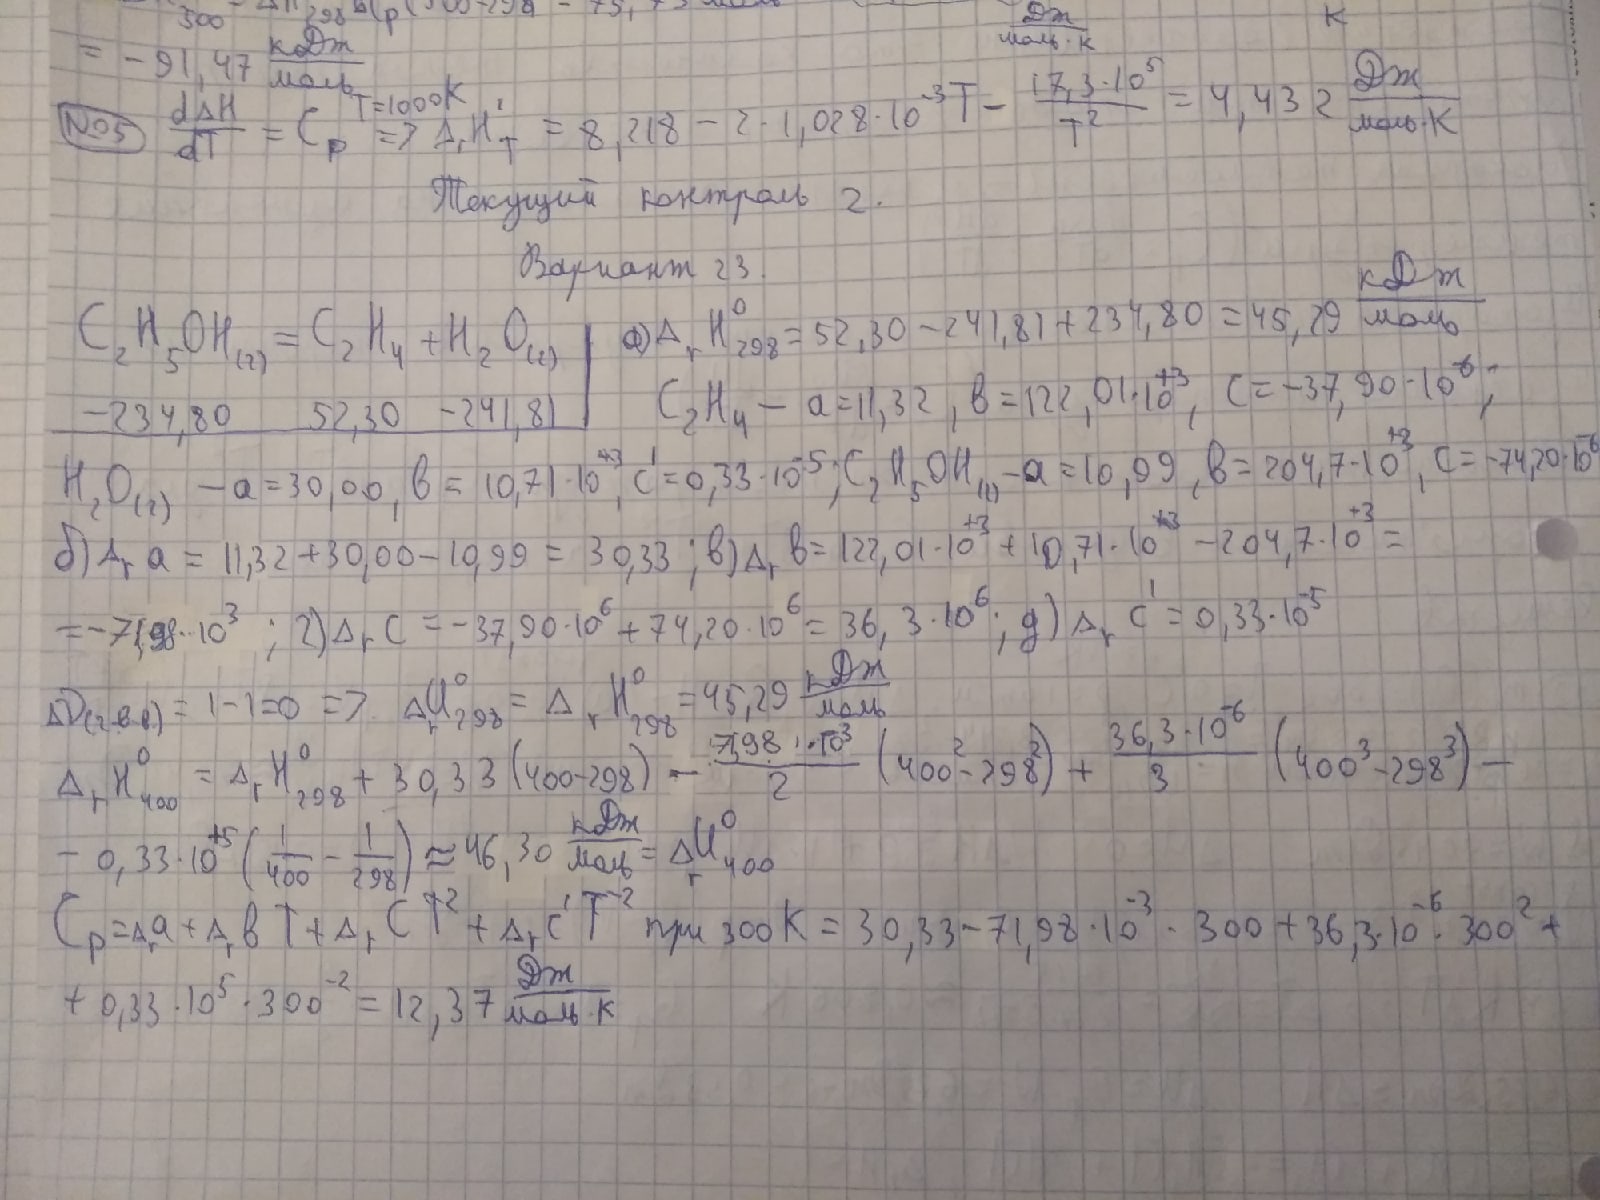 = -91,47 кДж/моль
№05 dΔH/dT = Cp T=1000K => ΔrH'T = 8,218 - 2·1,028·10⁻³T - 17,3·10⁵/T² = 4,432 Дж/моль·К
Текущий контроль 2.
Вариант 23.
C₂H₅OH(г) = C₂H₄ + H₂O(г) | а) ΔrH⁰₂₉₈ = 52,30 - 241,81 + 234,80 = 45,29 кДж/моль
-234,80 52,30 -241,81 | C₂H₄ - a = 11,32, в = 122,01·10⁺³, c = -37,90·10⁻⁶;
H₂O(г) - a = 30,00, в = 10,71·10⁺³, c' = 0,33·10⁻⁵; C₂H₅OH(г) - a = 10,99, в = 204,7·10⁺³, c = -74,20·10⁻⁶
б) Δr a = 11,32 + 30,00 - 10,99 = 30,33; в) Δr в = 122,01·10⁺³ + 10,71·10⁺³ - 204,7·10⁺³ =
= -71,98·10³; г) Δr c = -37,90·10⁶ + 74,20·10⁶ = 36,3·10⁶; д) Δr c' = 0,33·10⁻⁵
Δν(г.в.в) = 1-1=0 => ΔrU⁰₂₉₈ = ΔrH⁰₂₉₈ = 45,29 кДж/моль
ΔrH⁰₄₀₀ = ΔrH⁰₂₉₈ + 30,33 (400-298) - 7198·10³/2 (400²-298²) + 36,3·10⁻⁶/3 (400³-298³) -
- 0,33·10⁺⁵ (1/400 - 1/298) ≈ 46,30 кДж/моль = ΔrU⁰₄₀₀
Cp = Δr a + Δr в T + Δr c T² + Δr c' T⁻² при 300 K = 30,33 - 71,98·10⁻³·300 + 36,3·10⁻⁶·300² +
+ 0,33·10⁵·300⁻² = 12,37 Дж/моль·К